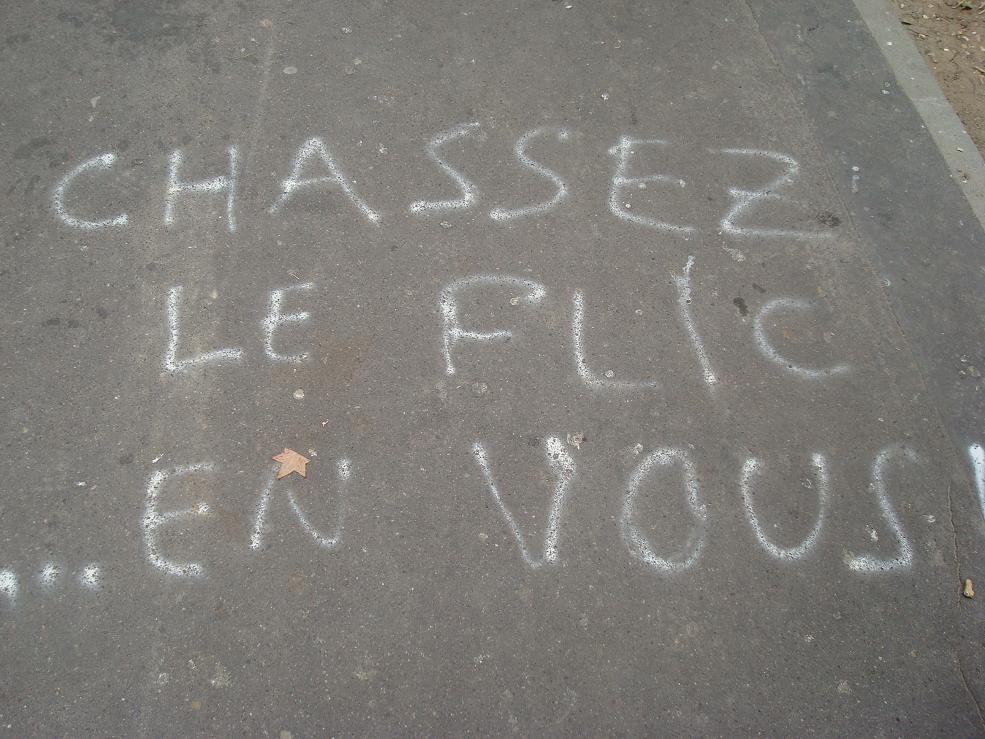 CHASSEZ
LE FLIC
...EN VOUS!